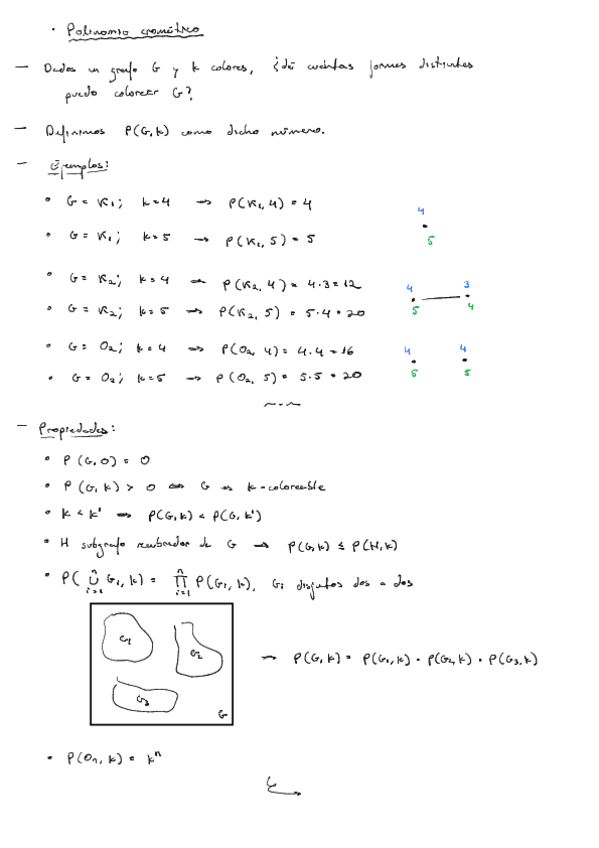 · Polinomio cromático
— Dados un grafo G y k colores, ¿de cuántas formas distintas
puedo colorear G?
— Definimos P(G,k) como dicho número.
— Ejemplos:
• G = K₁; k=4 → P(K₁,4) = 4
4
• G = K₁; k=5 → P(K₁,5) = 5
5
• G = K₂; k=4 → P(K₂,4) = 4·3=12
4 3
• G = K₂; k=5 → P(K₂,5) = 5·4=20
5 4
• G = O₂; k=4 → P(O₂,4) = 4·4=16
4 4
• G = O₂; k=5 → P(O₂,5) = 5·5=20
5 5
— Propiedades:
• P(G,0) = 0
• P(G,k) > 0 ⇔ G es k-coloreable
• k < k' → P(G,k) < P(G,k')
• H subgrafo recubridor de G → P(G,k) ≤ P(H,k)
• P(∪ⁿᵢ₌₁ Gᵢ,k) = ∏ⁿᵢ₌₁ P(Gᵢ,k), Gᵢ disjuntos dos a dos
G₁ G₂ → P(G,k) = P(G₁,k) · P(G₂,k) · P(G₃,k)
G₃
G
• P(Oₙ,k) = kⁿ